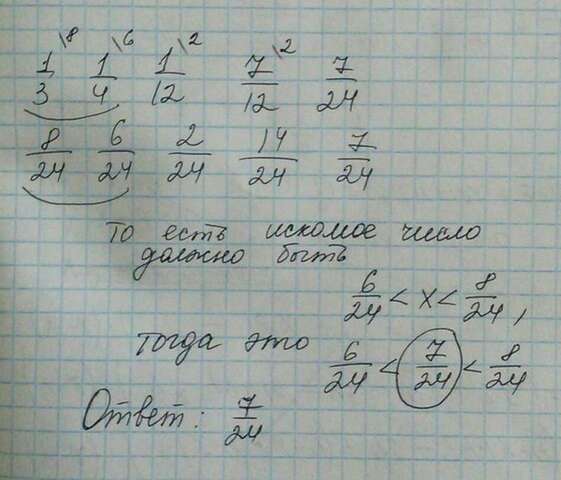 1/3 \8 1/4 \6 1/12 \2 7/12 \2 7/24
8/24 6/24 2/24 14/24 7/24
То есть искомое число
должно быть
6/24 < x < 8/24,
тогда это 6/24 < 7/24 < 8/24
Ответ: 7/24